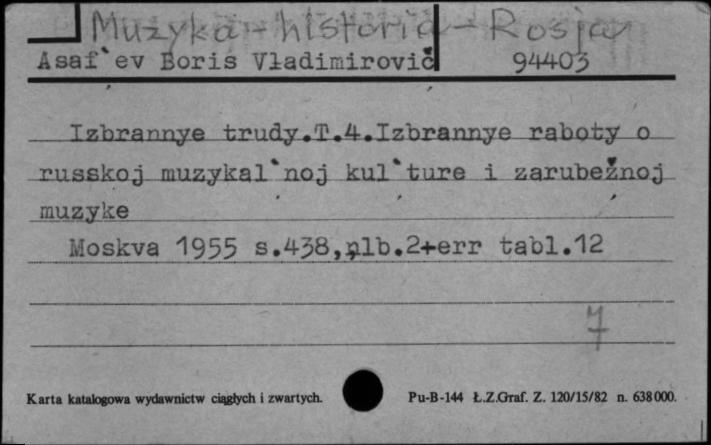 Muzyka - historia - Rosja
Asaf`ev Boris Vladimirovič 94403
Izbrannye trudy.T.4.Izbrannye raboty o
russkoj muzykal`noj kul`ture i zarubežnoj
muzyke
Moskva 1955 s.438,nlb.2+err tabl.12
7
Karta katalogowa wydawnictw ciągłych i zwartych. Pu-B-144 Ł.Z.Graf. Z. 120/15/82 n. 638000.